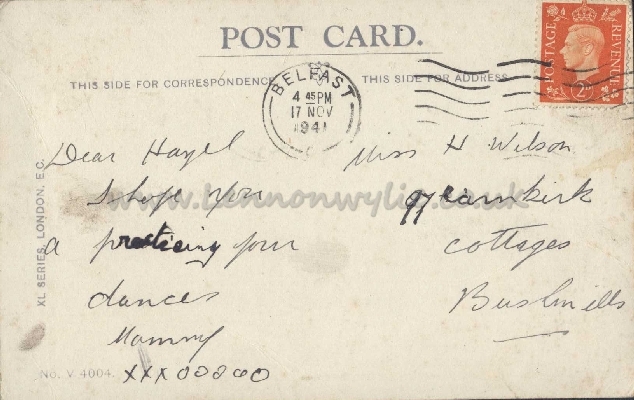 POST CARD.
THIS SIDE FOR CORRESPONDENCE
THIS SIDE FOR ADDRESS
BELFAST
4 45 PM
17 NOV
1941
POSTAGE
REVENUE
2D
XL SERIES, LONDON, E.C.
www.lennonwylie.co.uk
Dear Hazel
I hope you
a practicing your
dances
Mammy
XXXOOOOO
No. V 4004.
Miss H Wilson
cottages
Bushmills